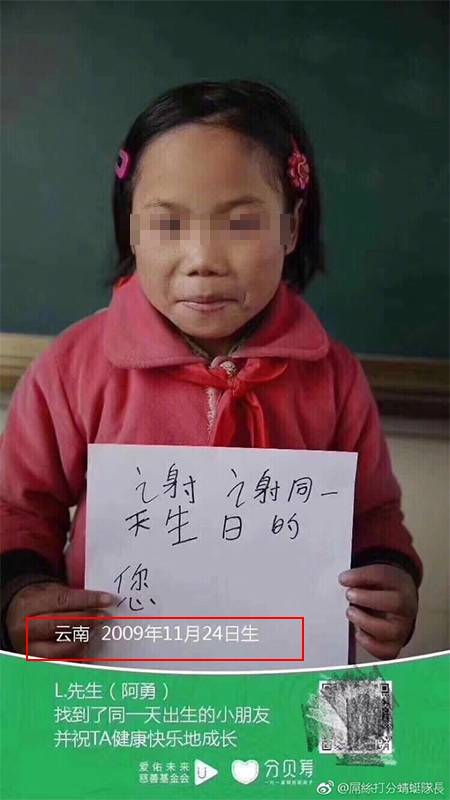 谢谢同一
天生日的
您
云南 2009年11月24日生
L.先生（阿勇）
找到了同一天出生的小朋友
并祝TA健康快乐地成长
爱佑未来
慈善基金会
分贝筹
@屌絲打分蜻蜓隊長